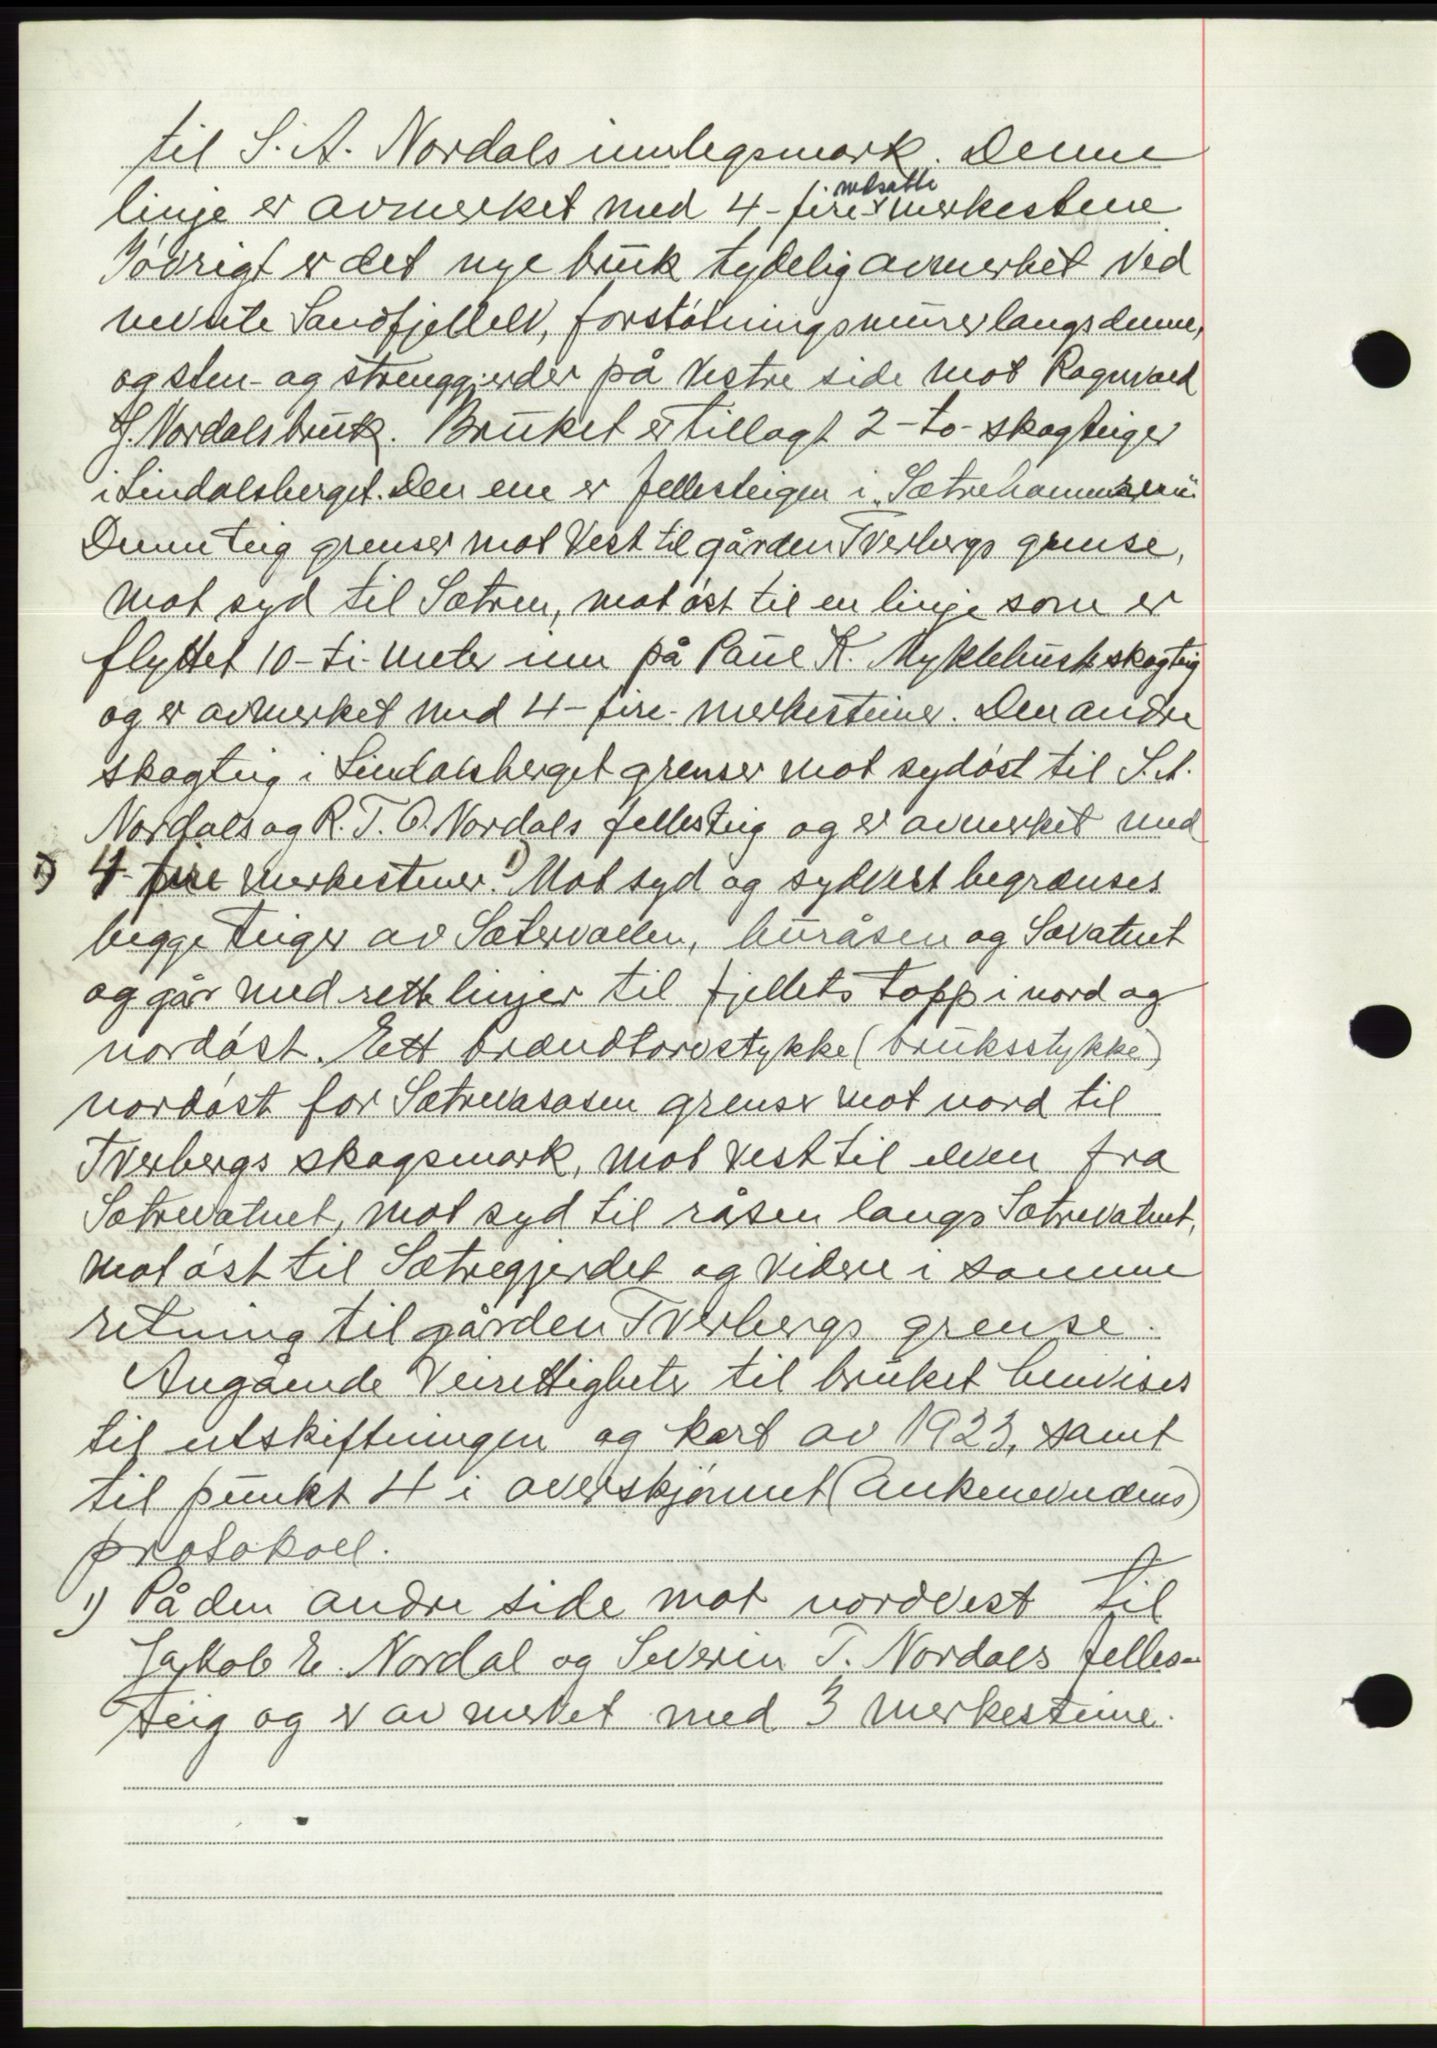 til S. A. Nordals innlegsmark. Denne
linje er avmerket med 4-fire- nedsatte merkestene
Iøvrigt er det nye bruk tydelig avmerket ved
nevnte Sandfjellelv, forstøtningsmurer langs denne,
og sten- og strenggjerder på vestre side mot Ragnvald
J. Nordals bruk. Bruket er tillagt 2-to- skogteiger
i Lindalsberget. Den ene er fellesteigen i "Sætrehammaren".
Denne teig grenser mot Vest til gården Tverbergs grense,
mot syd til Sætren, mot øst til en linje som er
flyttet 10-ti-meter inn på Paul K. Myklebusts skogteig
og er avmerket med 4-fire-merkesteiner. Den andre
skogteig i Lindalsberget grenser mot sydøst til S. A.
Nordals og R. T. O. Nordals fellesteig og er avmerket med
1) 4-fire merkestener. 1) Mot syd og sydvest begrænses
begge teiger av Sætervallen, buråsen og Savatnet
og går med rette linjer til fjellets topp i nord og
nordøst. Ett brændtorvstykke (bruksstykke)
nordøst for Sætrevasosen grenser mot nord til
Tverbergs skogsmark, mot vest til elven fra
Sætrevatnet, mot syd til råsen langs Sætrevatnet,
mot øst til Sætregjerdet og videre i samme
retning til gården Tverbergs grense.
Angående Veirettigheter til bruket henvises
til utskiftningen og kart av 1923, samt
til punkt 4 i overskjønnet (ankenevndens)
protokoll.
1) På den andre side mot nordvest til
Jakob E. Nordal og Severin T. Nordals felles-
teig og er avmerket med 3 merkesteine.